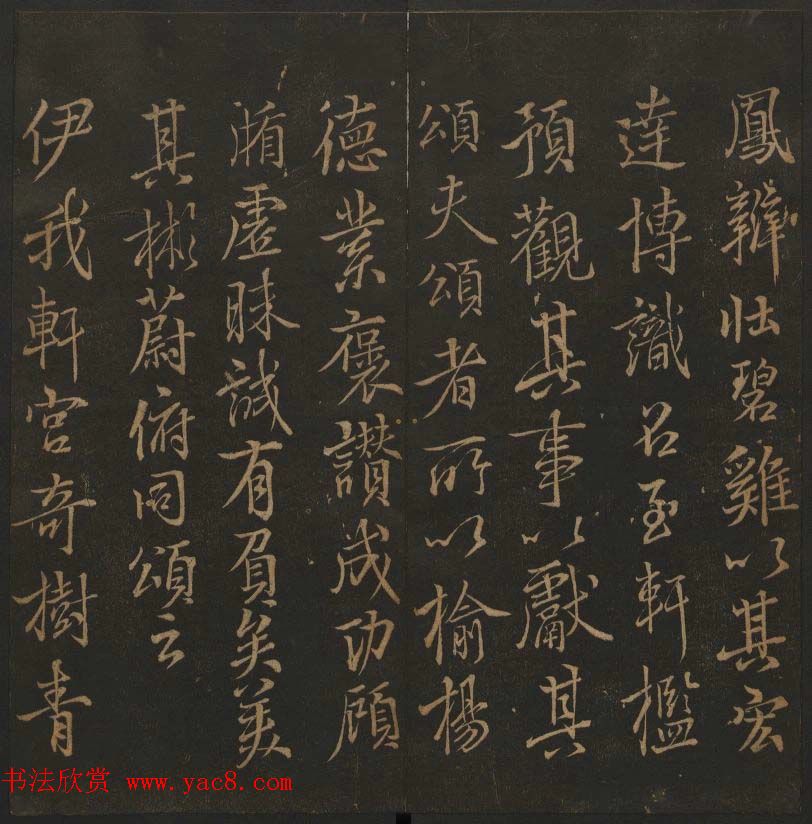 鳳辯壯碧雞以其宏
達博識召至軒檻
預觀其事以獻其
頌夫頌者所以榆楊
德業褒讚成功顧
循虛昧誠有負矣美
其彬蔚俯同頌云
伊我軒宮奇樹青
书法欣赏 www.yac8.com